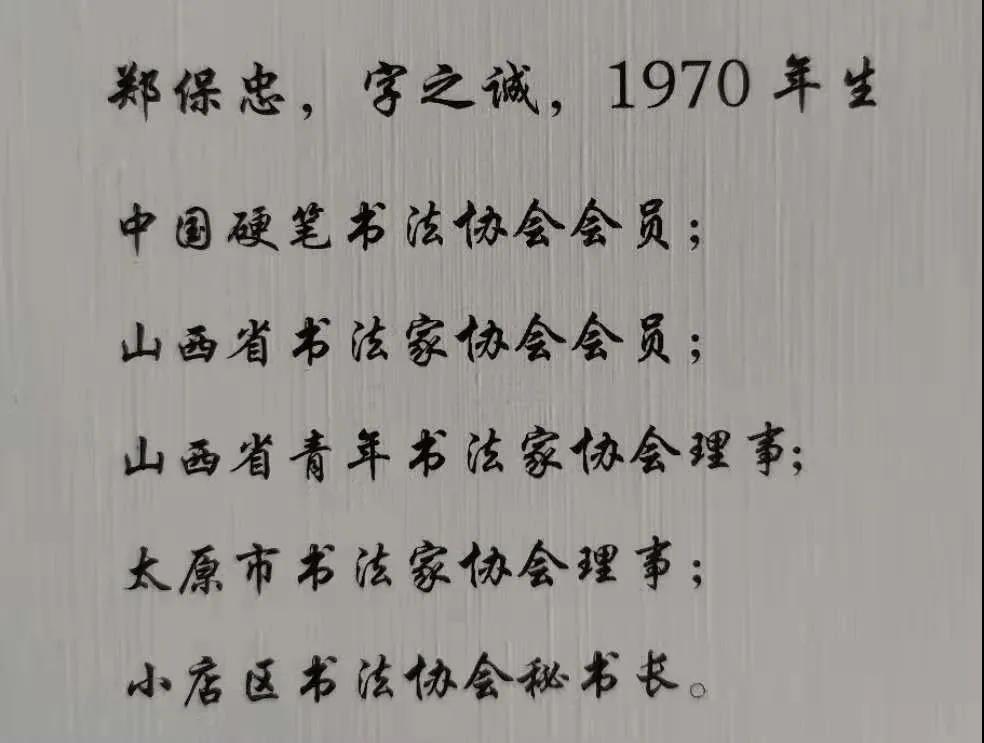 郑保忠，字之诚，1970年生
中国硬笔书法协会会员；
山西省书法家协会会员；
山西省青年书法家协会理事；
太原市书法家协会理事；
小店区书法协会秘书长。